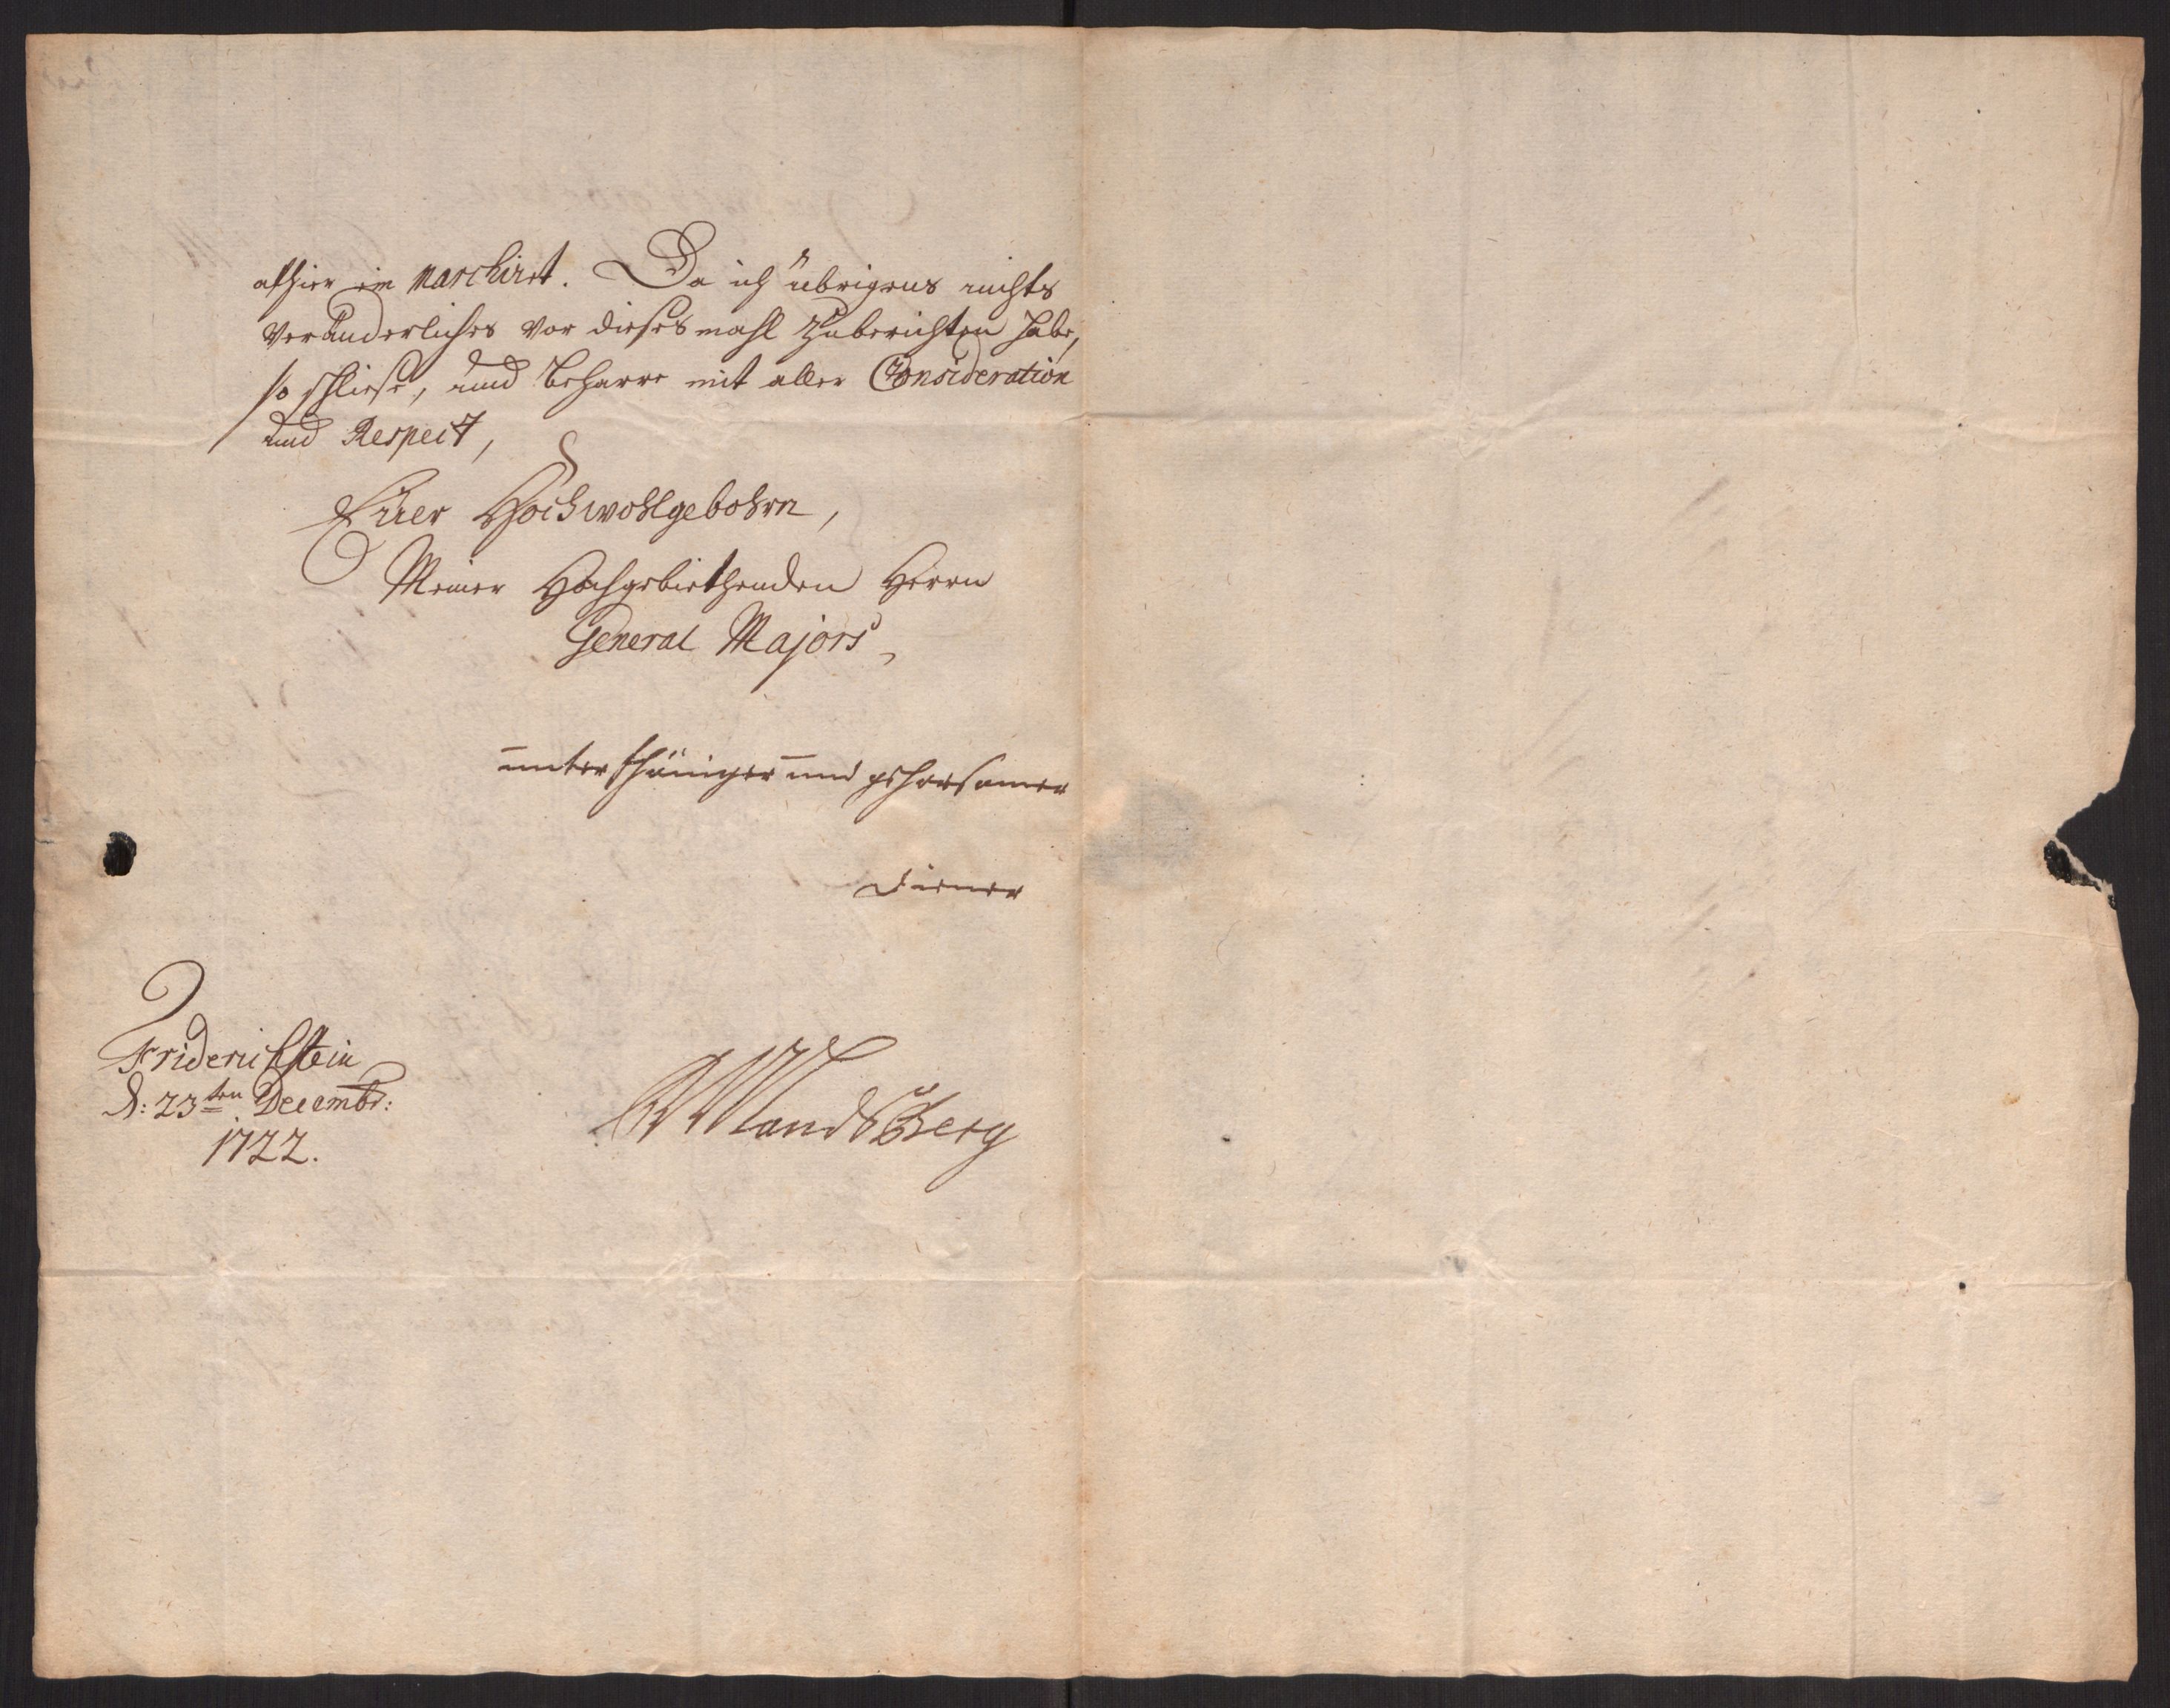 alhier ein marchiret. Da ich übrigens nichts
veränderliches vor dieses mahl zuberichten habe,
so schließe, und beharre mit aller Consideration
und Respect,
Eüer Hochwohlgebohrn,
Meines Hochgebiethenden Herrn
General Majors,
unterthäniger und gehorsamer
diener
Friderichstein
d: 23ten Decembr:
1722.
Landsberg